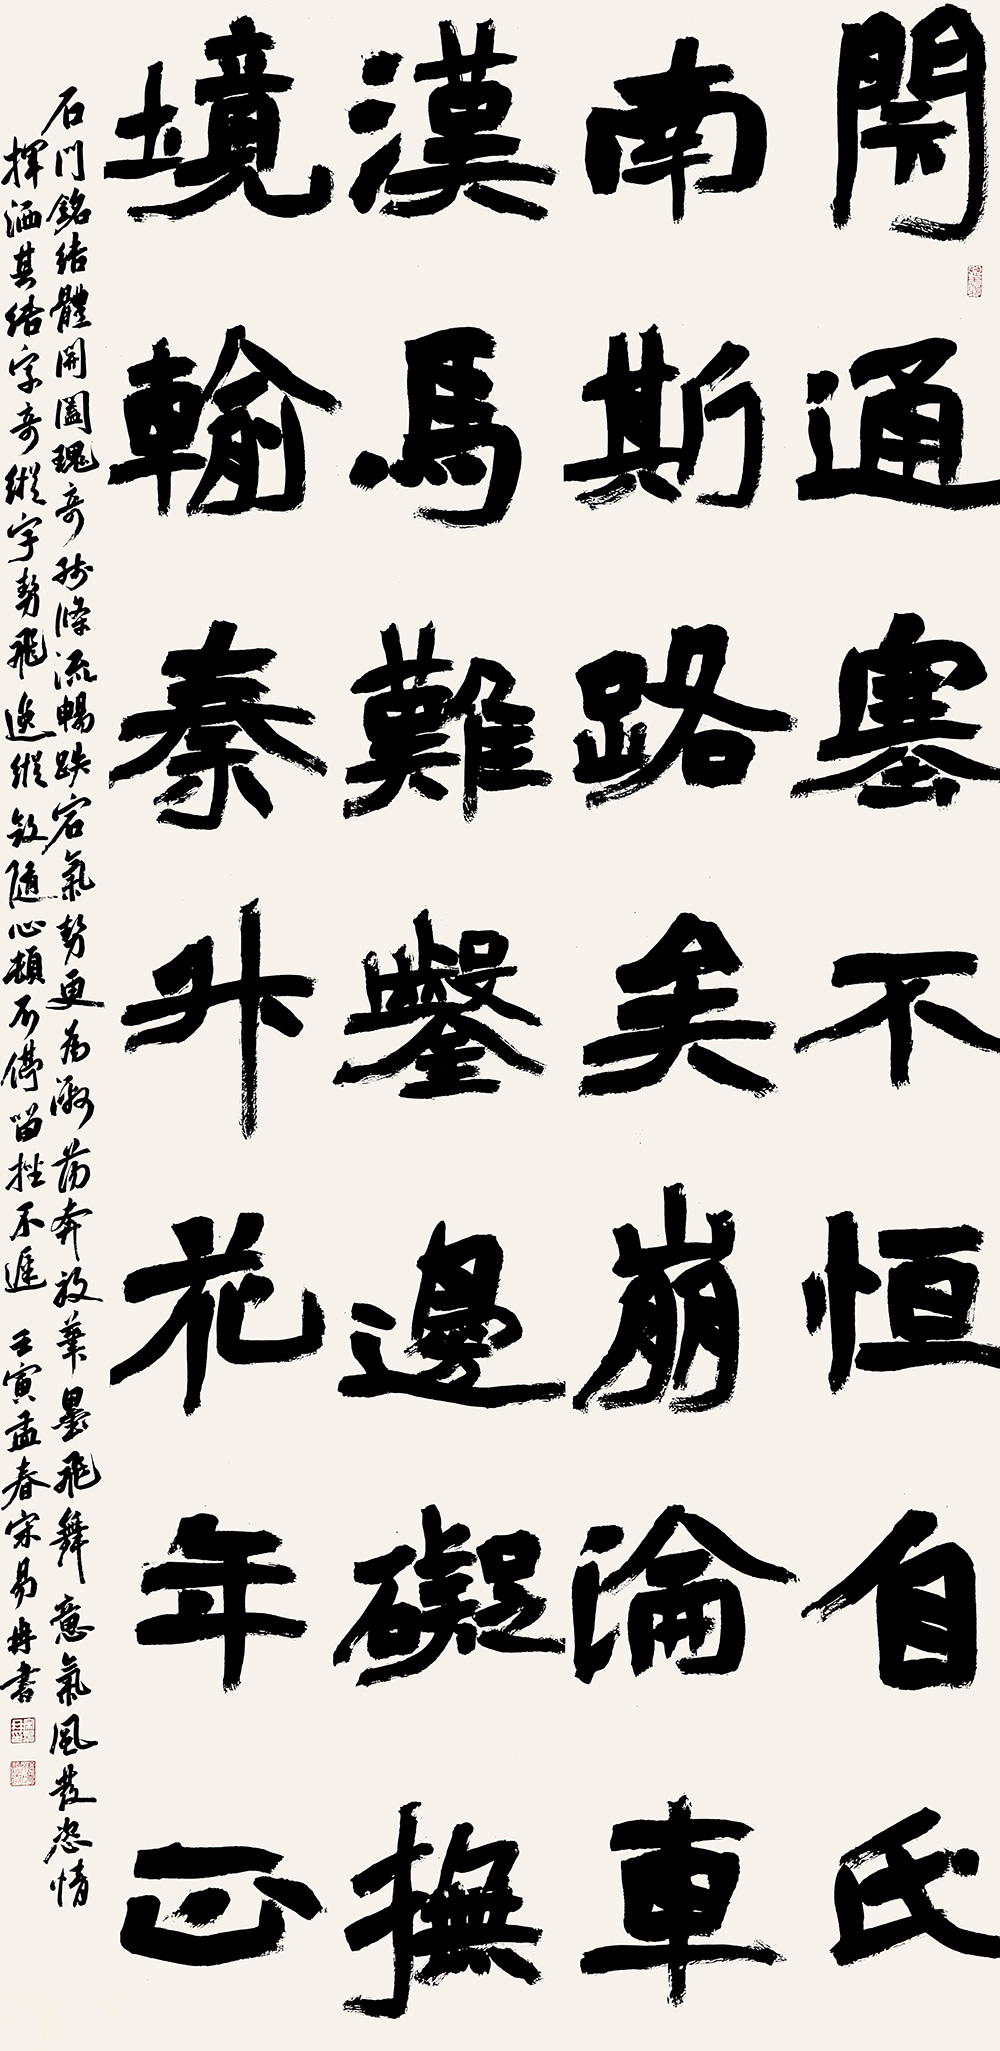 開通塞不恒自氏
南斯路矣崩淪車
漢馬難鑿邊礙撫
境輸秦升花年正
石門銘結體開闔瑰奇綫條流暢跌宕氣勢更為激蕩奔放筆墨飛舞意氣風發恣情
揮洒其結字奇縱字勢飛逸縱斂隨心頓不停留挫不遲 壬寅孟春宋易冉書